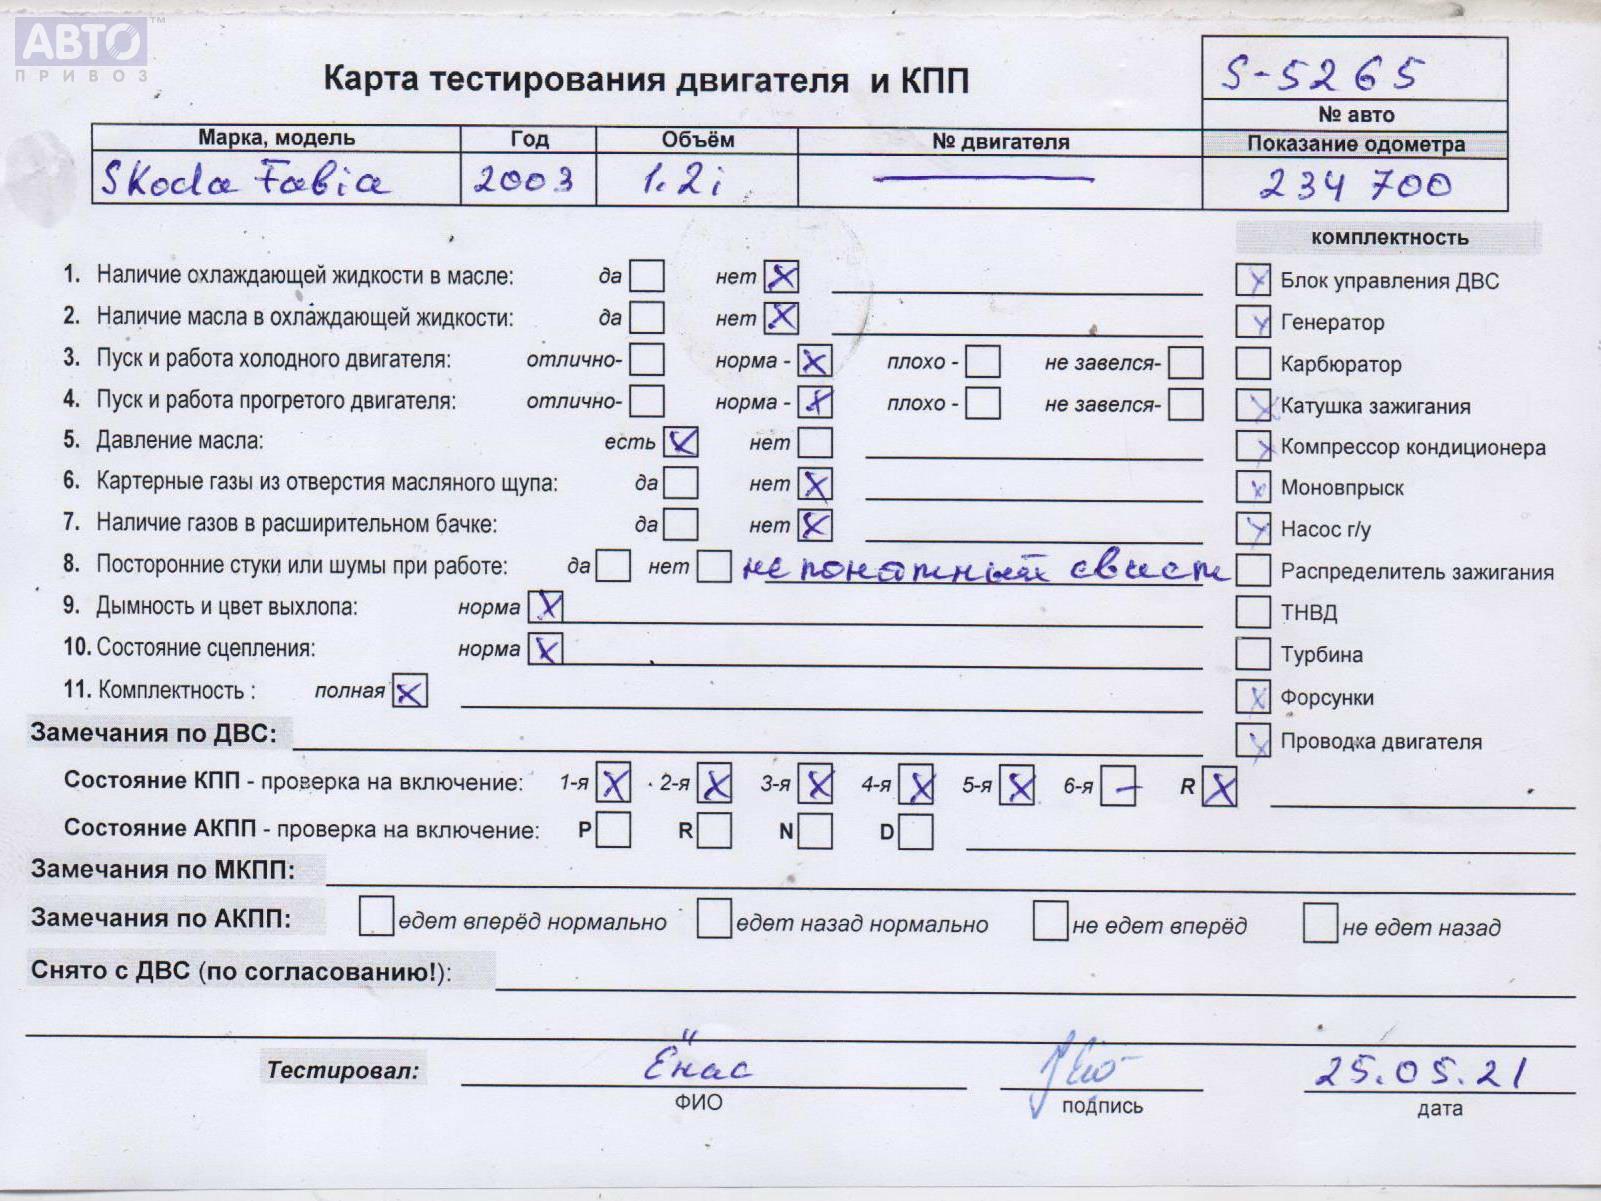 АВТО™
ПРИВОЗ
Карта тестирования двигателя и КПП
S-5265
№ авто
Марка, модель Год Объём № двигателя Показание одометра
Skoda Fabia 2003 1.2i — 234 700
комплектность
1. Наличие охлаждающей жидкости в масле: да нет X
Блок управления ДВС X
2. Наличие масла в охлаждающей жидкости: да нет X
Генератор X
3. Пуск и работа холодного двигателя: отлично- норма - X плохо - не завелся-
Карбюратор
4. Пуск и работа прогретого двигателя: отлично- норма - X плохо - не завелся-
Катушка зажигания X
5. Давление масла: есть X нет
Компрессор кондиционера X
6. Картерные газы из отверстия масляного щупа: да нет X
Моновпрыск X
7. Наличие газов в расширительном бачке: да нет X
Насос г/у X
8. Посторонние стуки или шумы при работе: да нет непонятный свист
Распределитель зажигания
9. Дымность и цвет выхлопа: норма X
ТНВД
10. Состояние сцепления: норма X
Турбина
11. Комплектность : полная X
Форсунки X
Замечания по ДВС:
Проводка двигателя X
Состояние КПП - проверка на включение: 1-я X 2-я X 3-я X 4-я X 5-я X 6-я – R X
Состояние АКПП - проверка на включение: P R N D
Замечания по МКПП:
Замечания по АКПП: едет вперёд нормально едет назад нормально не едет вперёд не едет назад
Снято с ДВС (по согласованию!):
Тестировал: Ёнас 25.05.21
ФИО подпись дата